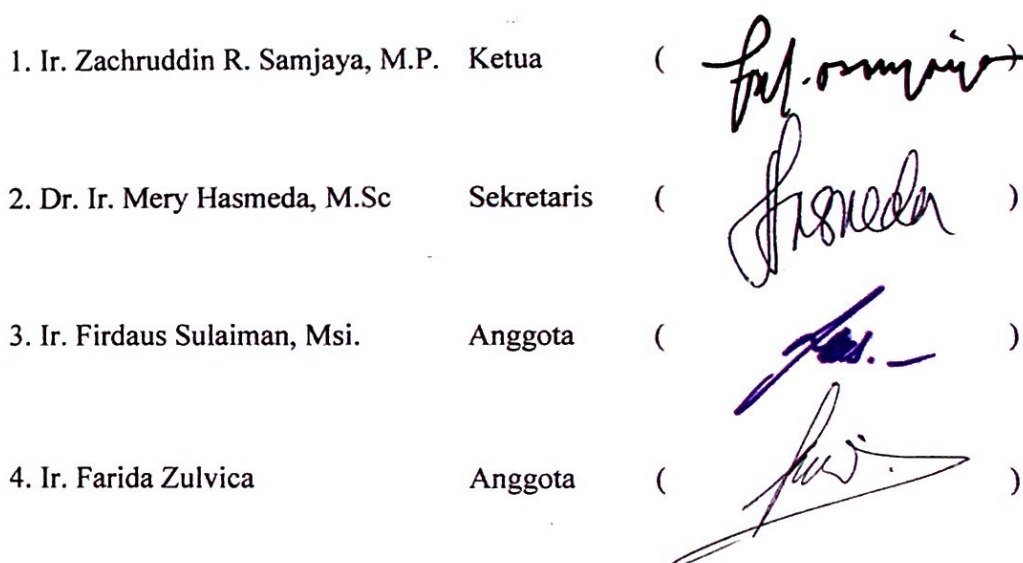 1. Ir. Zachruddin R. Samjaya, M.P. Ketua ( )
2. Dr. Ir. Mery Hasmeda, M.Sc Sekretaris ( Hasmeda )
3. Ir. Firdaus Sulaiman, Msi. Anggota ( )
4. Ir. Farida Zulvica Anggota ( )